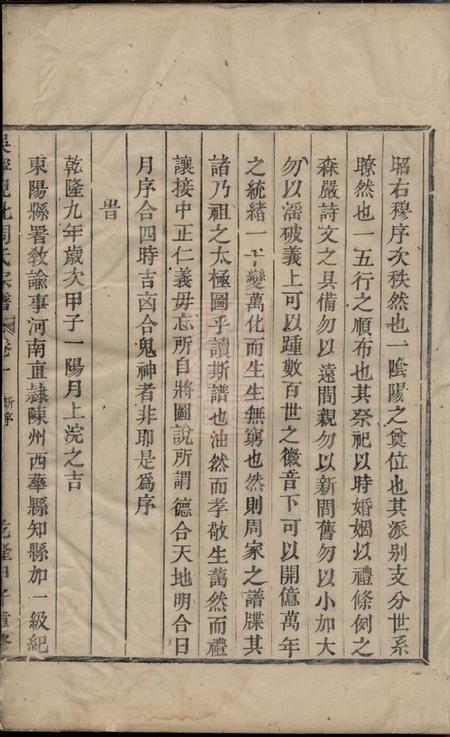 昭右穆序次秩然也一陰陽之奠位也其派别支分世系
暸然也一五行之順布也其祭祀以時婚姻以禮條例之
森嚴詩文之具備勿以遠間親勿以新間舊勿以小加大
勿以滛破義上可以踵數百世之徽音下可以開億萬年
之統緒一千變萬化而生生無窮也然則周家之譜牒其
諸乃祖之太極圖乎讀斯譜也油然而孝敬生藹然而禮
讓接中正仁義毋忘所自將圖說所謂德合天地明合日
月序合四時吉凶合鬼神者非耶是爲序
旹
乾隆九年歲次甲子一陽月上浣之吉
東陽縣署教諭事河南直隷陳州西華縣知縣加一級紀
周氏宗譜 卷一 新序 乾隆甲子重修